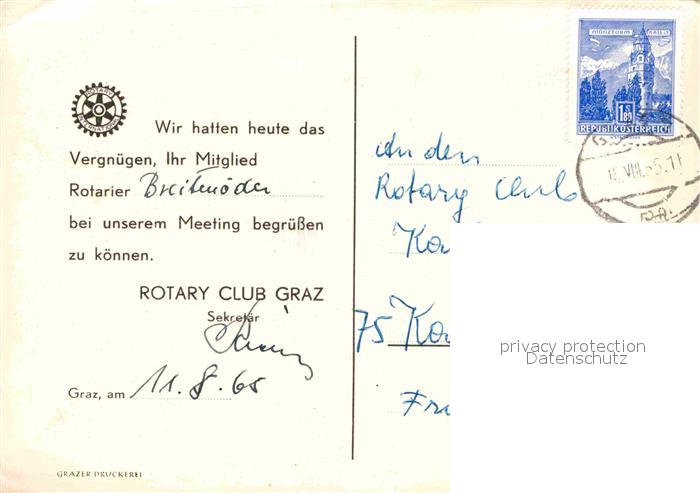 ROTARY
INTERNATIONAL
Wir hatten heute das
Vergnügen, Ihr Mitglied
Rotarier Breitenöder
bei unserem Meeting begrüßen
zu können.
ROTARY CLUB GRAZ
Sekretär
Graz, am 11.8.65
GRAZER DRUCKEREI
MÜNZTURM HALL I.T.
1.80
REPUBLIK ÖSTERREICH
VIII.
An den
Rotary Club
Ka
75 Ka
Fr
privacy protection
Datenschutz